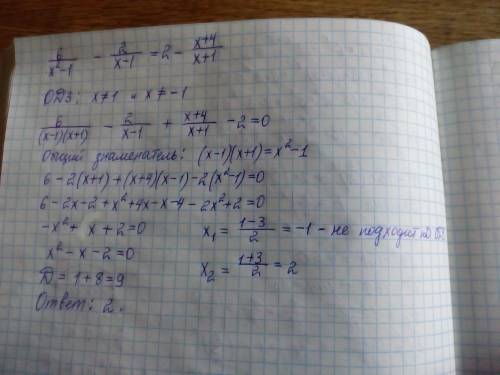 6/(x²-1) - 2/(x-1) = 2 - (x+4)/(x+1)
ОДЗ: x≠1 и x≠-1
6/((x-1)(x+1)) - 2/(x-1) + (x+4)/(x+1) - 2=0
Общий знаменатель: (x-1)(x+1)=x²-1
6-2(x+1)+(x+4)(x-1)-2(x²-1)=0
6-2x-2+x²+4x-x-4-2x²+2=0
-x²+x+2=0
x²-x-2=0
Д=1+8=9
x₁ = (1-3)/2 = -1 - не подходит по
x₂ = (1+3)/2 = 2
Ответ: 2.